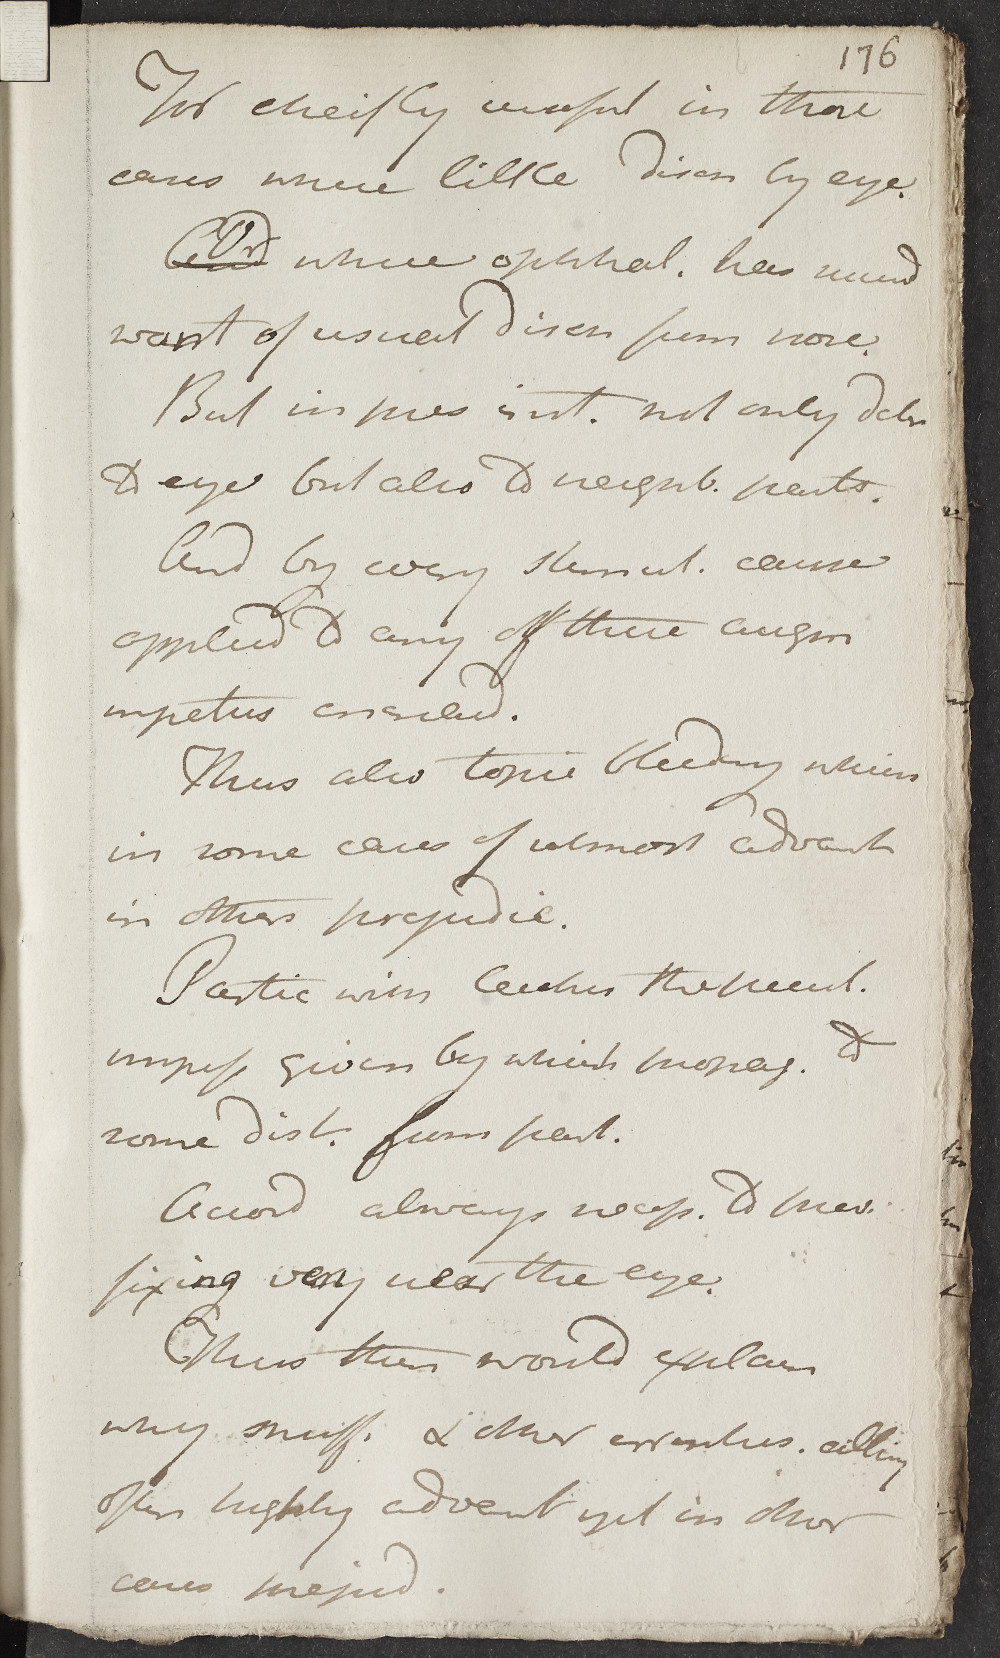 176
For cheifly useful in those
cases where little disch by eye.
Or where ophthal. has succd
want of usual disch from nose.
But in pres inst. not only deter
to eye but also to neighb. parts.
And by every stimul. cause
applied to any of these augm
impetus encreasd.
Thus also topic bleeding which
in some cases of utmost advant
in others prejudic.
Partic with leeches the punct.
impress given by which propag. to
some dist. from part.
Accord always necess. to prev.
fixing very near the eye.
Thus then would explain
why snuff. & other errhines. acting
often highly advant yet in other
cases prejud.